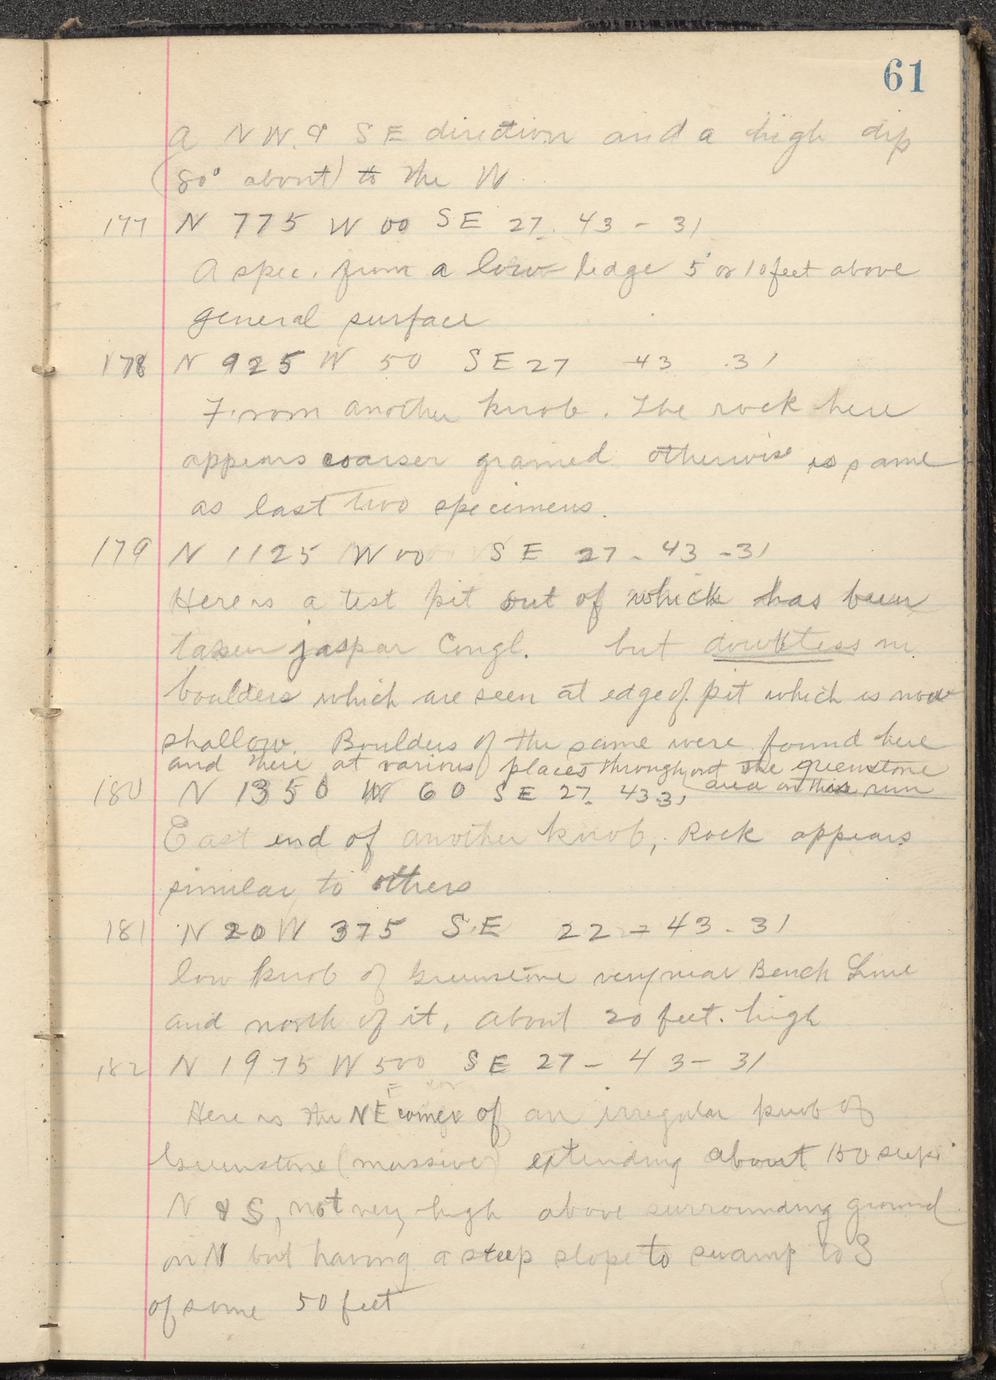 61
a N W. & S E direction and a high dip
(80° about) to the W.
177 N 775 W 00 SE 27. 43 - 31
A spec. from a low ledge 5 or 10 feet above
general surface
178 N 925 W 50 SE 27 43 . 31
From another knob. The rock here
appears coarser grained otherwise is same
as last two specimens.
179 N 1125 W 00 S E 27 - 43 - 31
Here is a test pit out of which has been
taken jaspar Congl. but doubtless in
boulders which are seen at edge of pit which is now
shallow. Boulders of the same were found here
and there at various places throughout the greenstone
area on this run
180 N 1350 W 60 S E 27. 43 31
East end of another knob, Rock appears
similar to others
181 N 20 W 375 S.E 22 - 43 - 31
low knob of Greenstone very near Bench Line
and north of it, about 20 feet. high
182 N 1975 W 500 S E 27 - 43 - 31
Here is the NE corner of an irregular knob of
Greenstone (massive) extending about 150 steps
N & S, not very high above surrounding ground
on N but having a steep slope to swamp to S
of some 50 feet